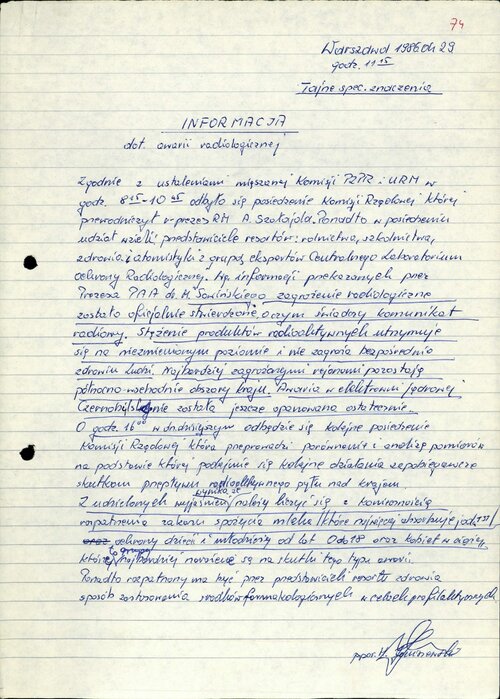 74
Warszawa 1986 04 29
godz. 11 15
Tajne spec. znaczenia
INFORMACJA
dot. awarii radiologicznej
Zgodnie z ustaleniami mięszanej Komisji PZPR i URM w
godz. 8 45 - 10 45 odbyło się posiedzenie Komisji Rządowej której
przewodniczył v-prezes RM A. Szałajda. Ponadto w posiedzeniu
udział wzieli przedstawiciele resortów: rolnictwa, szkolnictwa,
zdrowia i atomistyki z grupą ekspertów Centralnego Laboratorium
Ochrony Radiologicznej. Wg. informacji przekazanych przez
Prezesa PAA dr. M. Sowińskiego zagrożenie radiologiczne
zostało oficjalnie stwierdzone, o czym świadczy komunikat
radiowy. Stężenie produktów radioaktywnych utrzymuje
się na niezmienionym poziomie i nie zagraża bezpośrednio
zdrowiu ludzi. Najbardziej zagrożonymi rejonami pozostają
północno-wschodnie obszary kraju. Awaria w elektrowni jądrowej
nie została jeszcze opanowana ostatecznie.
O godz. 16 00 w dn. dzisiejszym odbędzie się kolejne posiedzenie
Komisji Rządowej która przeprowadzi porównanie i analizę pomiarów
na podstawie który podejmie się kolejne działania zapobiegawcze
skutkom przepływu radioaktywnego pyłu nad krajem.
Z udzielonych wyjaśnień wynika że należy liczyć się z koniecznością
rozpatrzenia zakazu spożycia mleka (które najwięcej absorbuje jod 131)
oraz ochrony dzieci i młodzieży od lat 0 do 18 oraz kobiet w ciąży,
która to grupa najbardziej narażona są na skutki tego typu awarii.
Ponadto rozpatrzony ma być przez przedstawicieli resortu zdrowia
sposób zastosowania środków farmakologicznych w celach profilaktycznych
ppor.